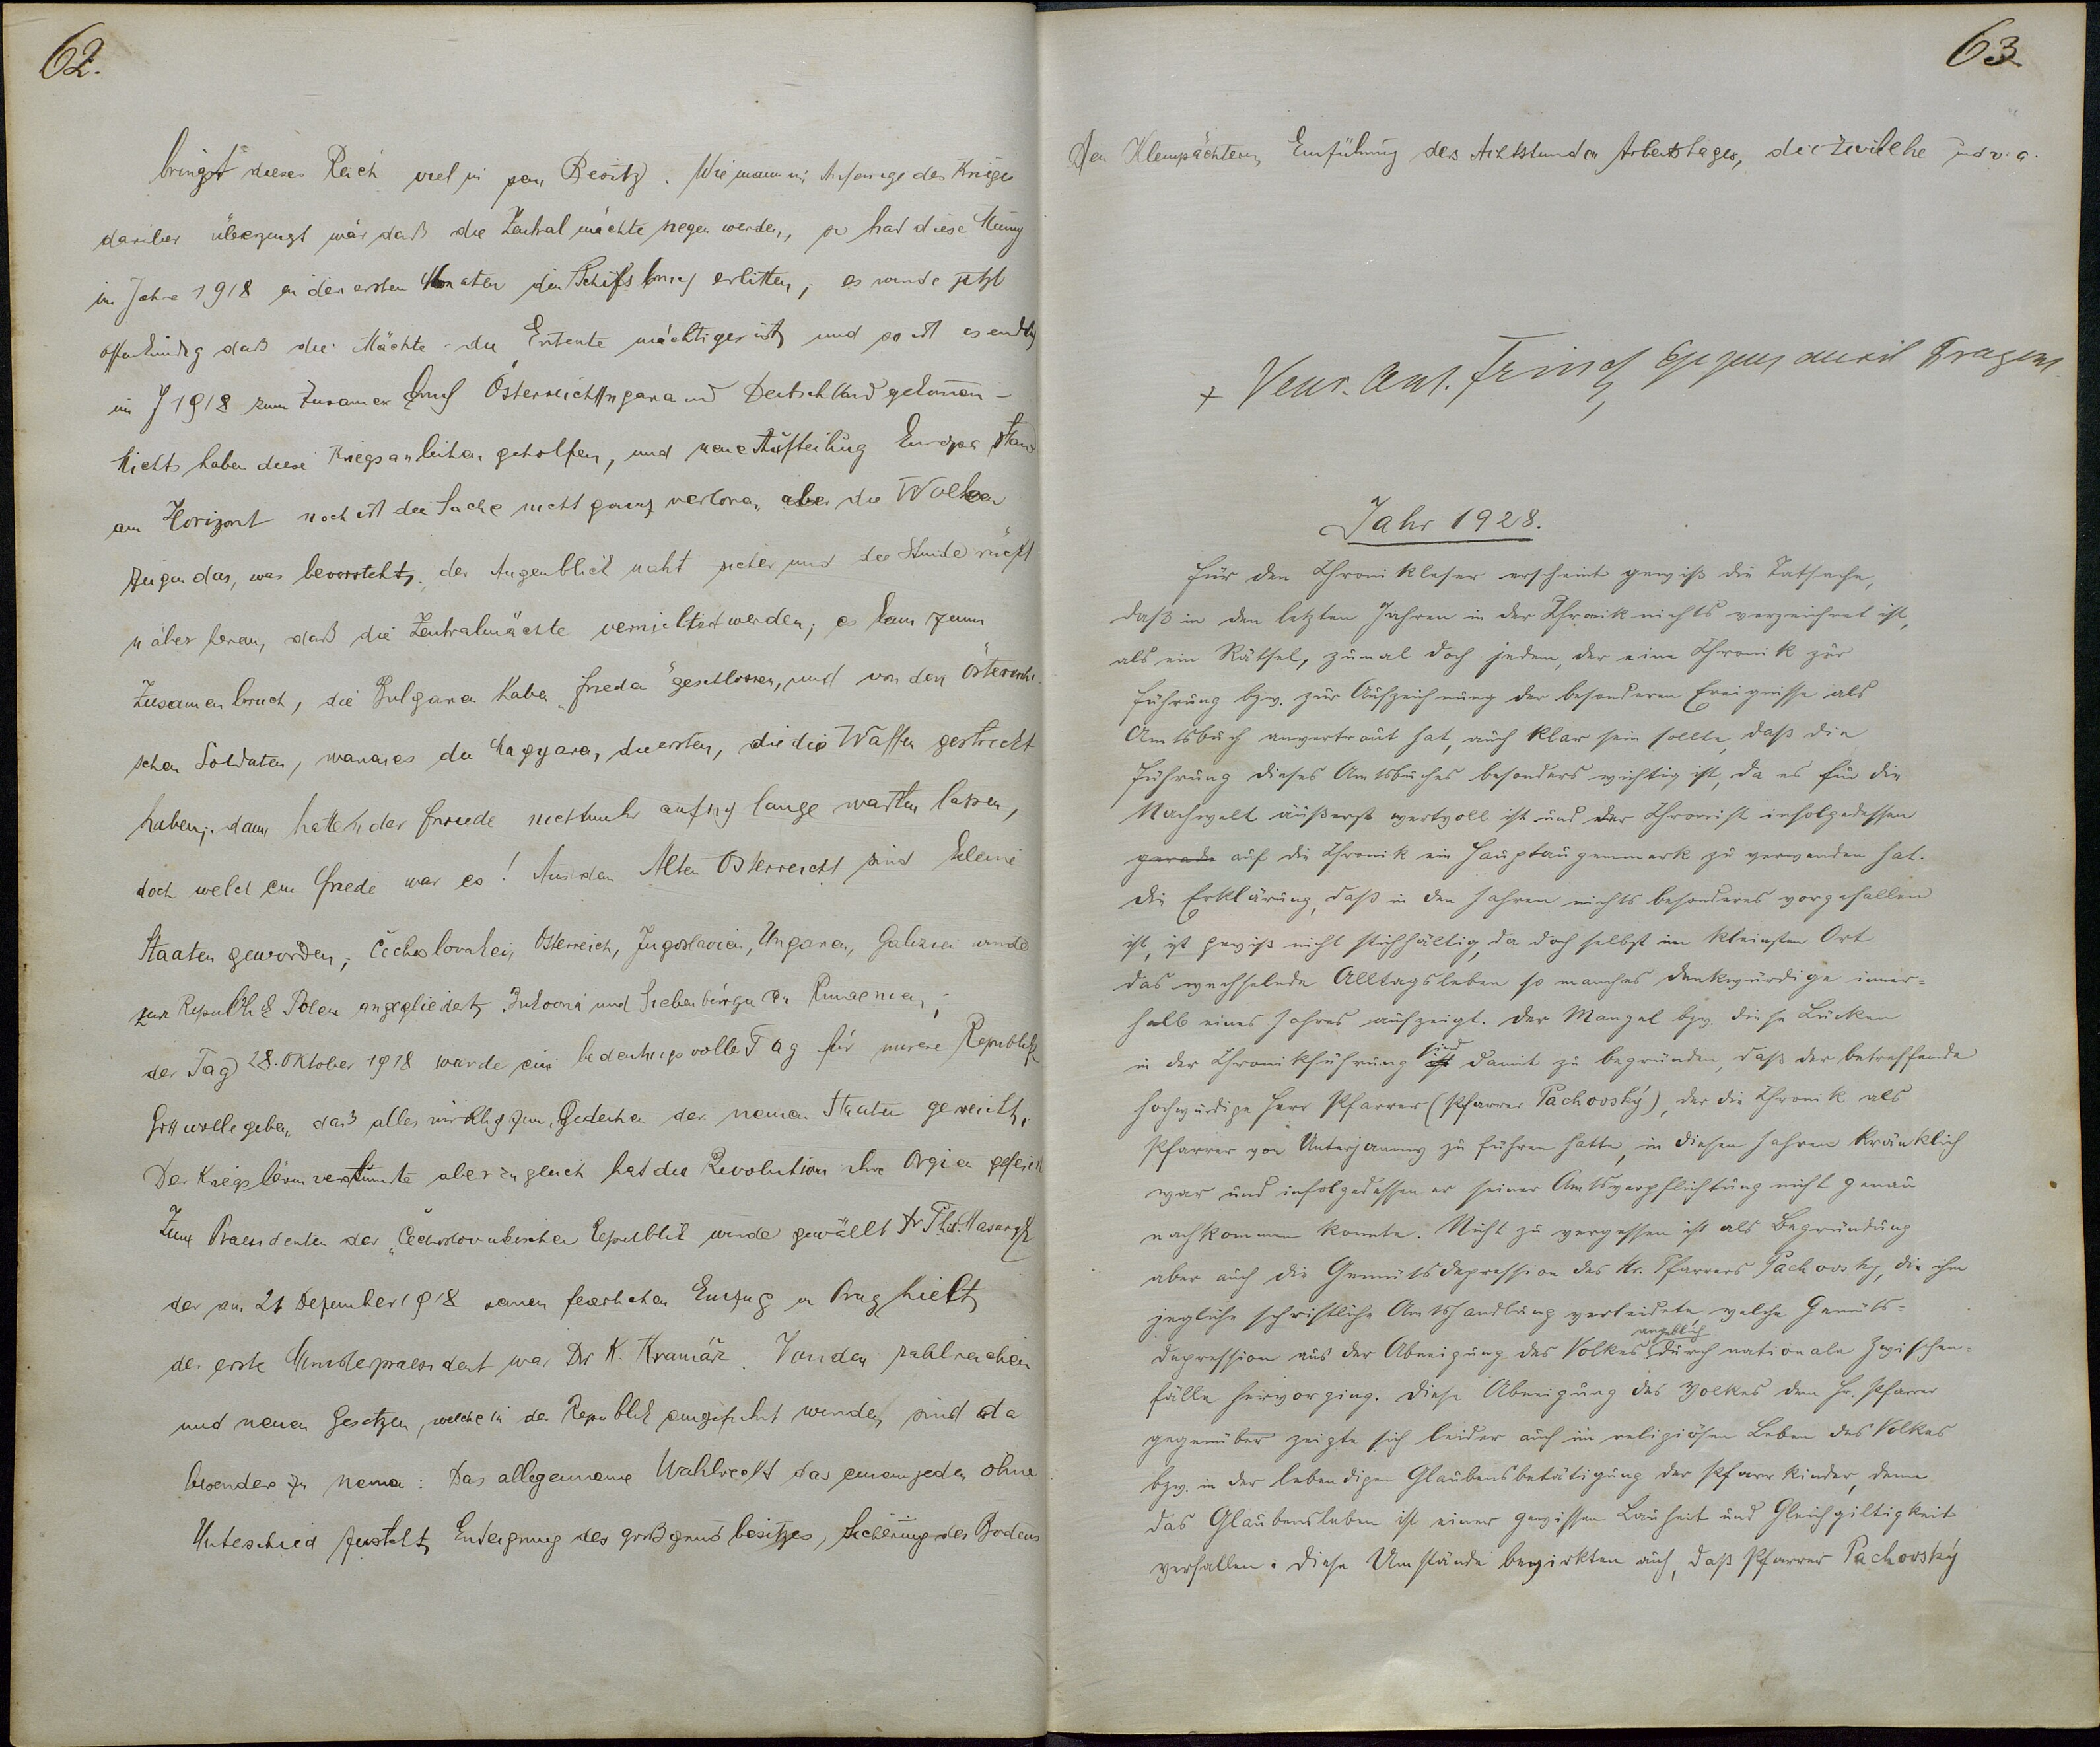 62.
bringt dieses Reich viel in sein Besitz. Wie man im Anfange des Kriges
darüber überzeugt war daß die Zentralmächte siegen werden, so hat diese Meinung
im Jahre 1918 in den ersten Monaten den Schifsbruch erlitten, es wurde jetzt
offenkundig daß die Mächte der Entente mächtiger ist und so ist es endlich
im J 1918 zum Zusamenbruch Österreichungarn und Deutschland gekommen –
Nichts haben diese Kriegsanleihen geholfen, und neue Aufteilung Europa stand
am Horizont noch ist die Sache nicht ganz verloren, aber die Wolken
zeigen das, was bevorsteht, der Augenblick naht sicher und die Stunde rückt
näher heran, daß die Zentralmächte vernichtet werden; es kam zum
Zusamenbruch, die Bulgaren haben „Frieden" geschlossen, und von den österreichi-
schen Soldaten, waren es die Magyaren, die ersten, die die Waffen gestreckt
haben; dann hatte der Friede nicht mehr auf sich lange warten lassen,
doch welch ein Friede war es! Aus dem Alten Österreich sind kleine
Staaten geworden; Čechoslovakei, Österreich, Jugoslavien, Ungaren, Galizien wurde
zur Republik Polen angegliedert, Bukovina und Siebenbürgen an Rumaenien;
der Tag 28. Oktober 1918 wurde ein bedeutungsvolle Tag für unsere Republik
Gott wolle geben, daß alles wirklich zum Gedeihen der neuen Staaten gereicht.
Der Kriegslärm verstummte aber zugleich hat die Revolution ihre Orgien gefeiert
Zum Praesidenten der „Čechoslovakischen Republik wurde gewällt Dr Th. Masaryk
der am 21 Dezember 1918 seinen feierlichen Einzug in Prag hielt,
der erste Ministerpraesident war Dr K. Kramář. Von den zahlreichen
und neuen Gesetzen, welche in der Republik eingeführt wurden, sind da
besonders zu nenen: Das allgemeine Wahlrecht das einem jeden ohne
Unteschied zusteht, Enteignung des großgrundbesitzes, Sicherung des Bodens
63.
den Kleinpächtern, Einfühung des Achtstunden Arbeitstages, die Zivilehe und v. a.
+ Ven. Ant.
Jahr 1928.
Für den Chronikleser erscheint gewiß die Tatsache,
daß in den letzten Jahren in der Chronik nichts verzeichnet ist,
als ein Rätsel, zumal doch jedem, der eine Chronik zur
Führung bzw. zur Aufzeichnung der besonderen Ereignisse als
Amtsbuch anvertraut hat, auch klar sein sollte, daß die
Führung dieses Amtsbuches besonders wichtig ist, da es für die
Nachwelt äußerst wertvoll ist und der Chronist infolgedessen
gerade auf die Chronik ein Hauptaugenmerk zu verwenden hat.
Die Erklärung, daß in den Jahren nichts besonderes vorgefallen
ist, ist gewiß nicht stichhältig, da doch selbst im kleinsten Ort
das wechselnde Alltagsleben so manches denkwürdige inner-
halb eines Jahres aufzeigt. Der Mangel bzw. diese Lücken
in der Chronikführung sind damit zu begründen, daß der betreffende
hochwürdige Herr Pfarrer (Pfarrer Pachovský), der die Chronik als
Pfarrer von Unterjamny zu führen hatte, in diesen Jahren kränklich
war und infolgedessen er seiner Amtsverpflichtung nicht genau
nachkommen konnte. Nicht zu vergessen ist als Begründung
aber auch die Gemütsdepression des Hr. Pfarrers Pachovský, die ihm
jegliche schriftliche Amtshandlung verleidete, welche Gemüts-
depression aus der Abneigung des Volkes angeblich durch nationale Zwischen-
fälle hervorging. Diese Abneigung des Volkes dem Hr. Pfarrer
gegenüber zeigte sich leider auch im religiösen Leben des Volkes
bzw. in der lebendigen Glaubensbetätigung der Pfarrkinder, denn
das Glaubensleben ist einer gewissen Lauheit und Gleichgiltigkeit
verfallen. Diese Umstände bewirkten auch, daß Pfarrer Pachovský